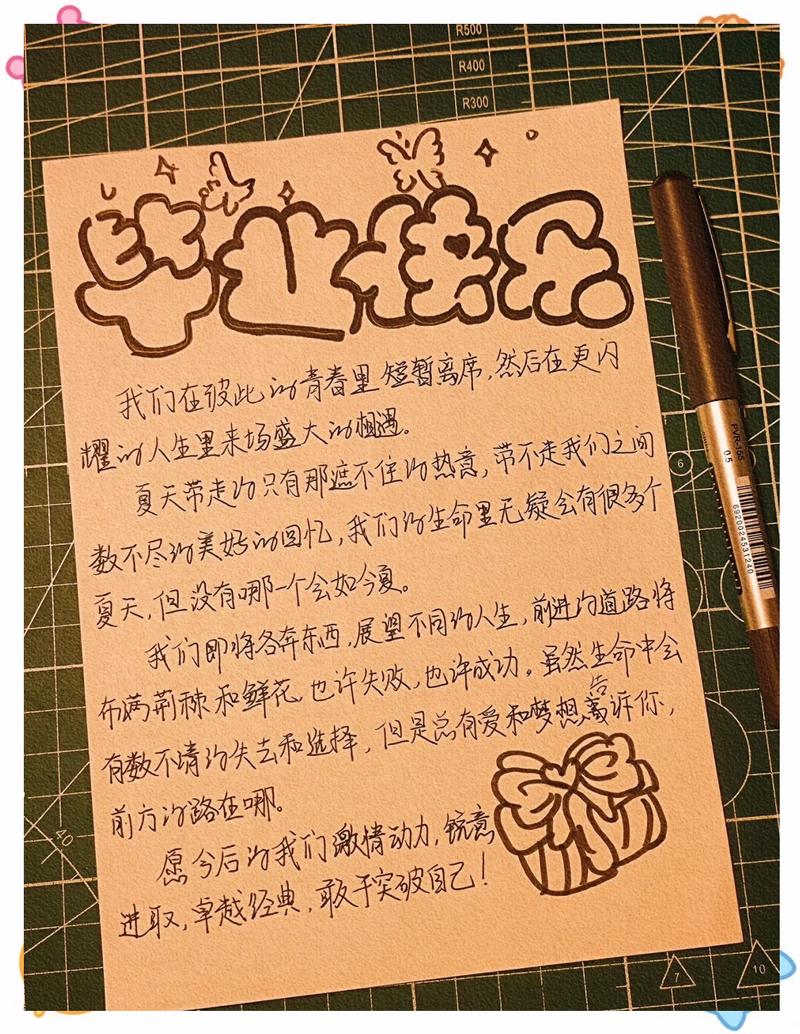 R500
R400
R300
毕业快乐
我们在彼此的青春里短暂离席，然后在更闪
耀的人生里来场盛大的相遇。
夏天带走的只有那遮不住的热意，带不走我们之间
数不尽的美好的回忆，我们的生命里无疑会有很多个
夏天，但没有哪一个会如今夏。
我们即将各奔东西，展望不同的人生，前进的道路将
布满荆棘和鲜花，也许失败，也许成功。虽然生命中会
有数不清的失去和选择，但是总有爱和梦想告诉你，
前方的路在哪。
愿今后的我们激情动力，锐意
进取，卓越经典，敢于突破自己！
PVR-155
0.5
6920024531240
6
40
7
10